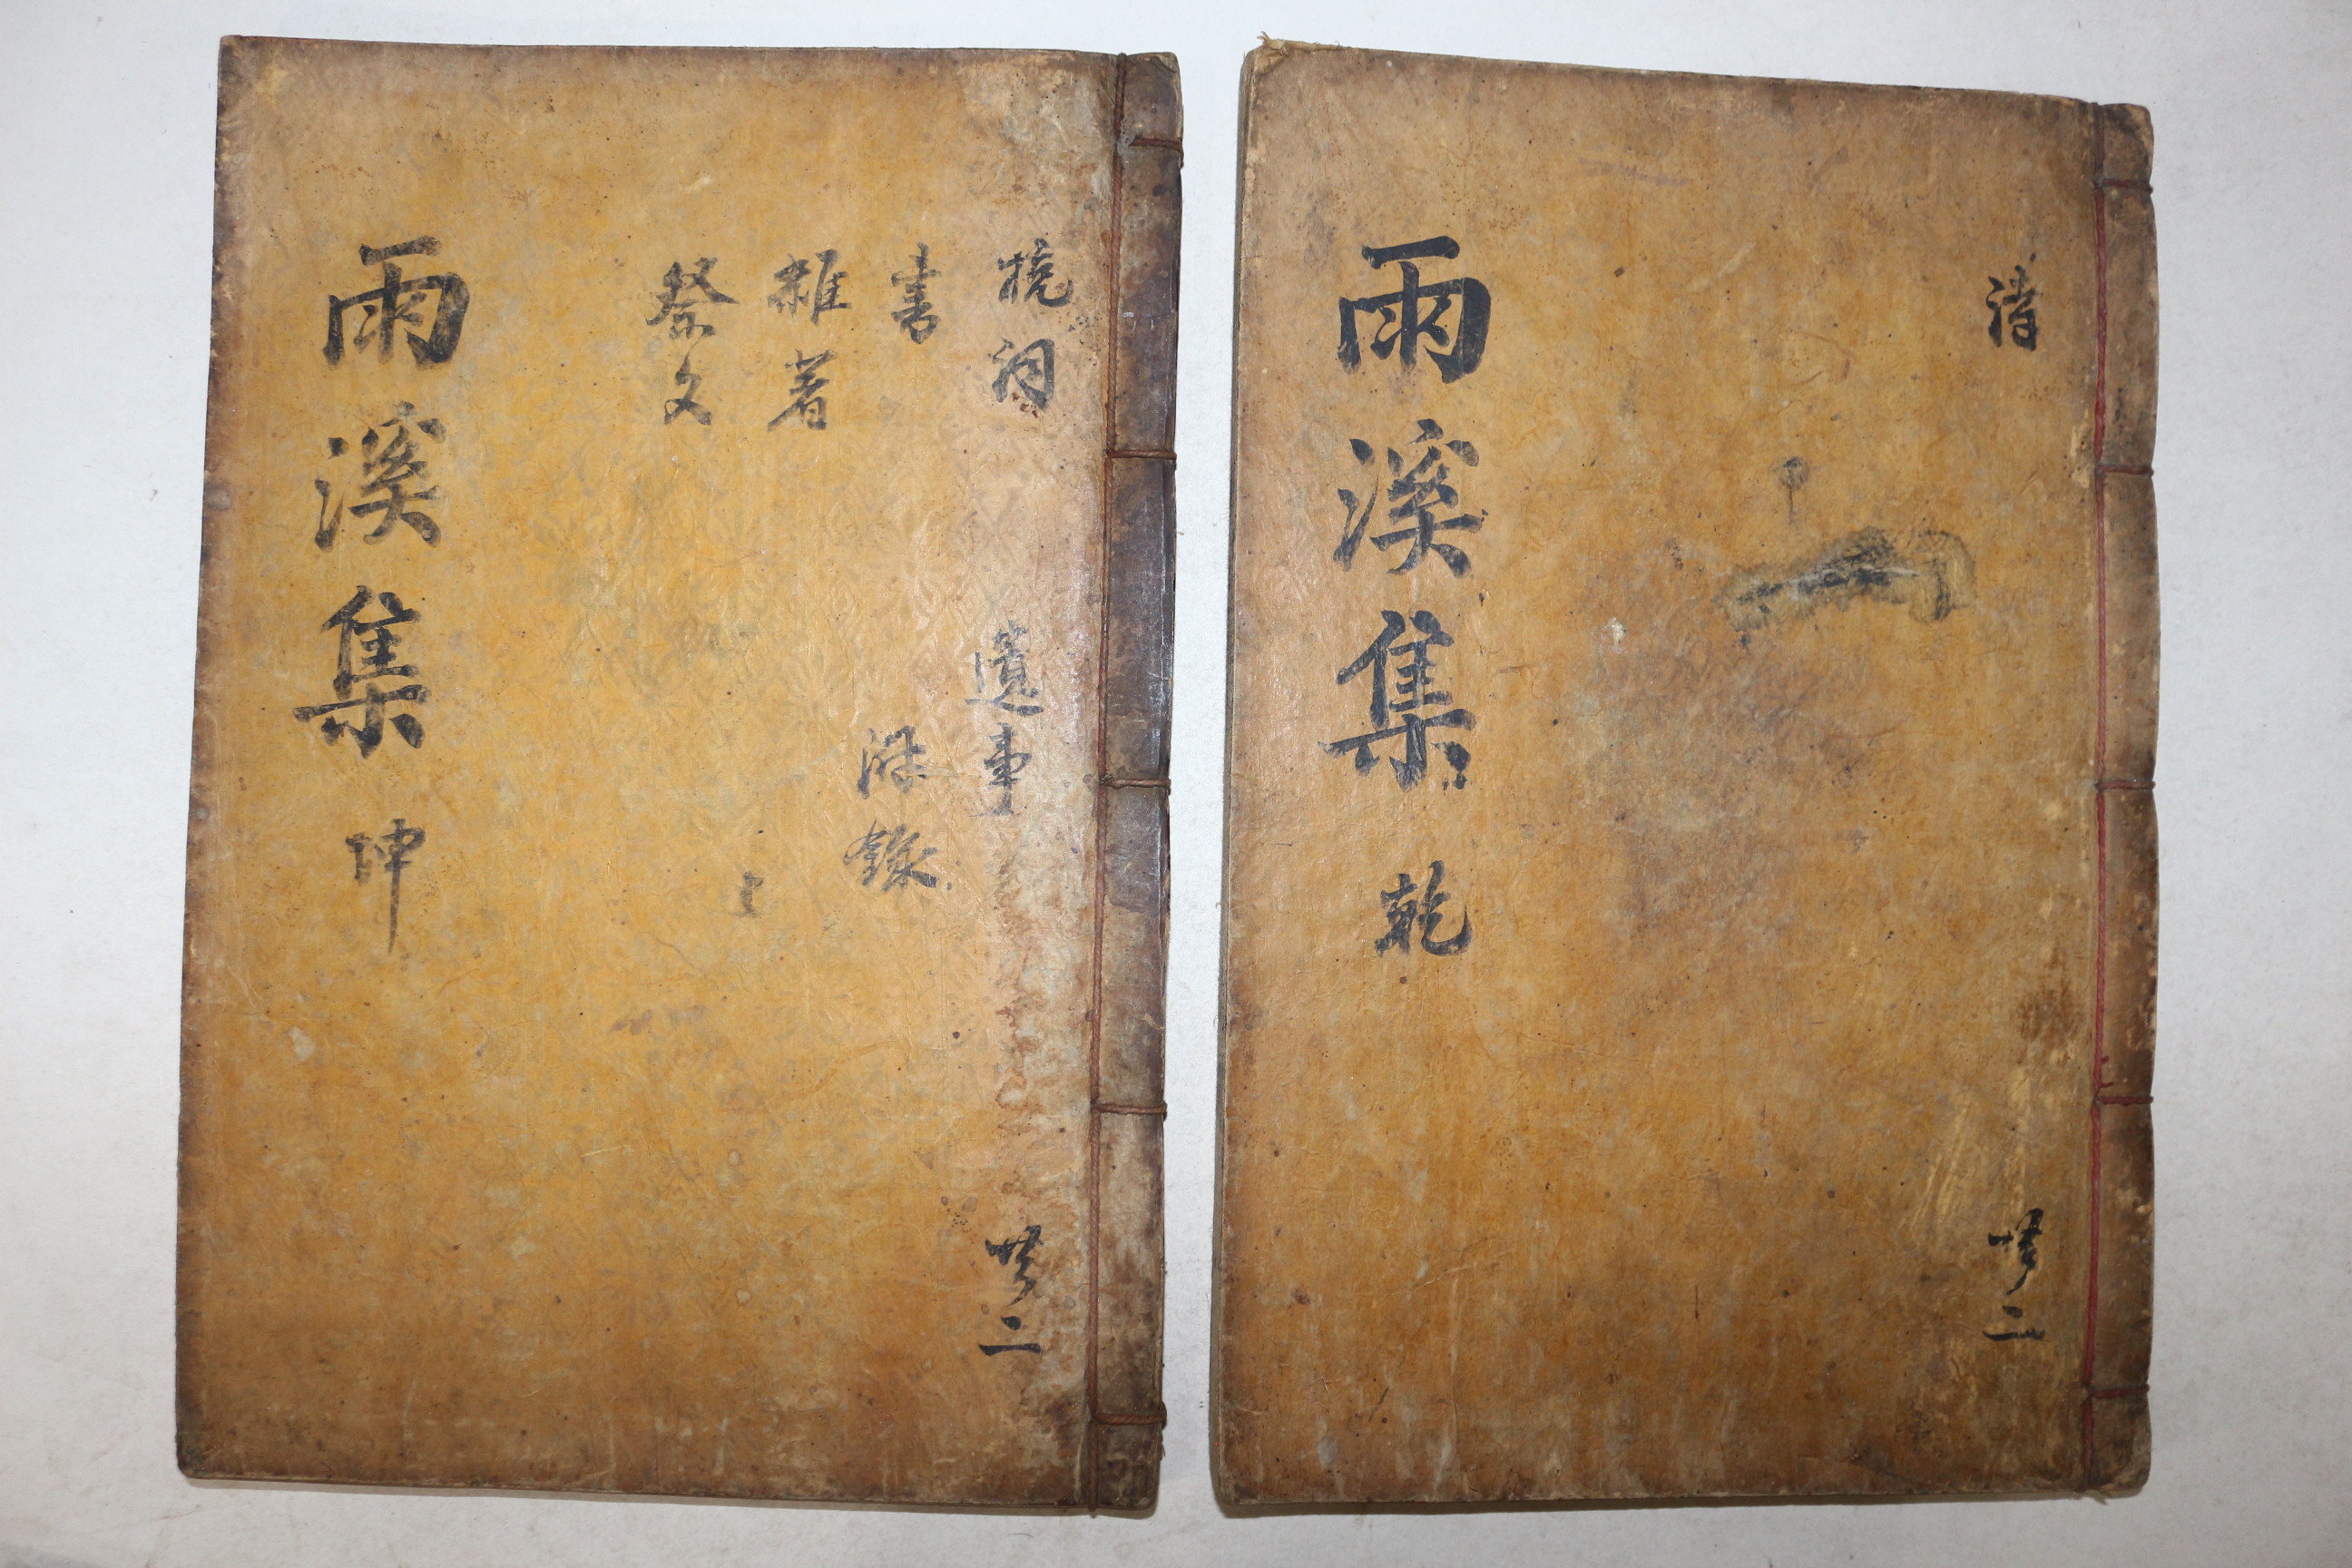 詩
共二
雨溪集 乾
挽詞
遺事
共二
書
附錄
雜著
祭文
雨溪集 坤